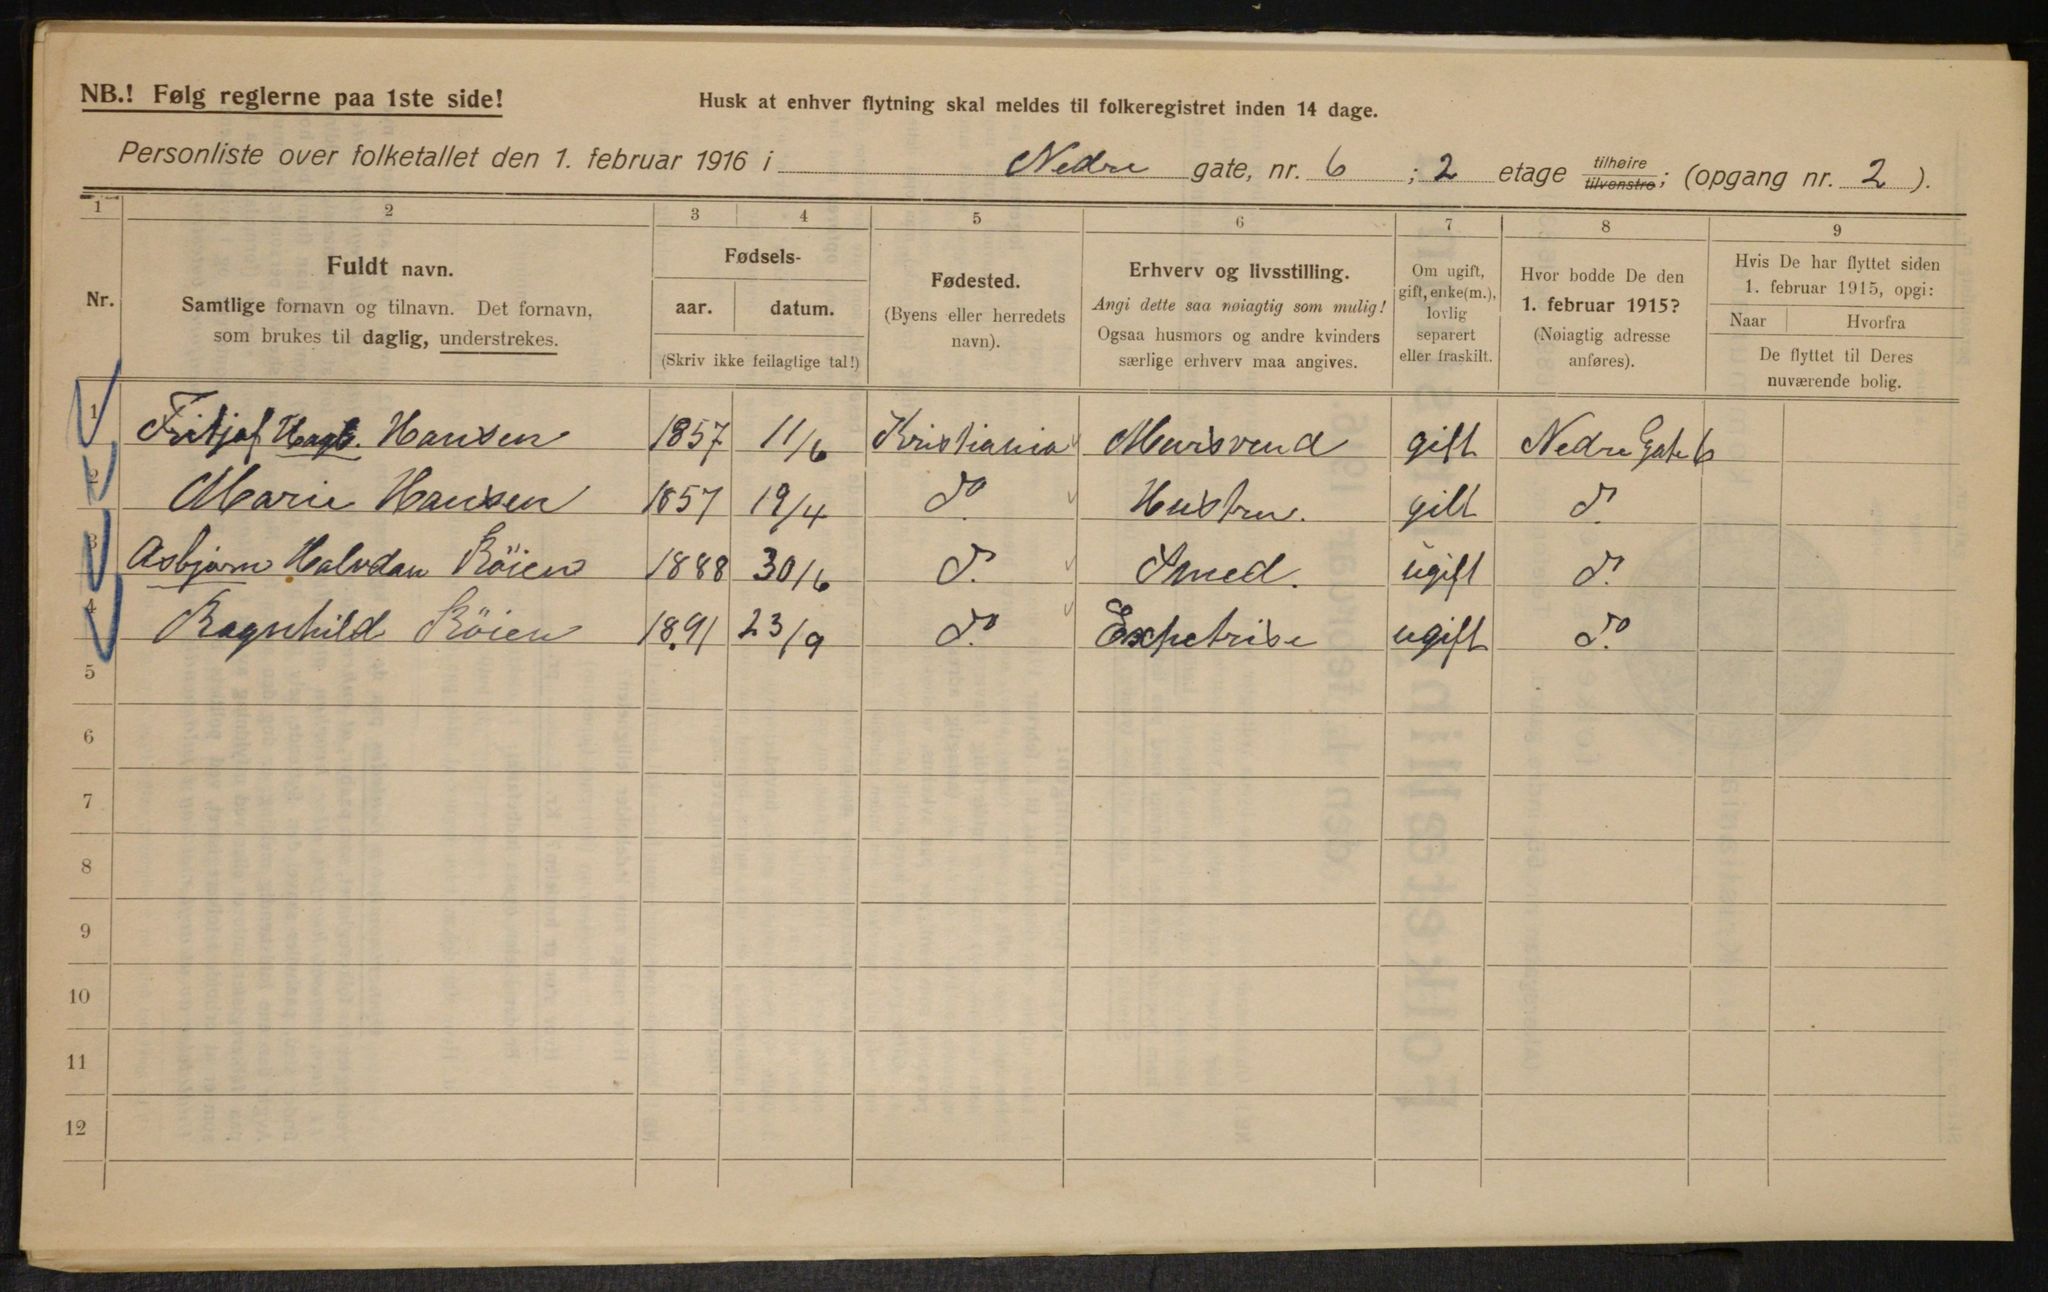 NB.! Følg reglerne paa 1ste side!
Husk at enhver flytning skal meldes til folkeregistret inden 14 dage.
Personliste over folketallet den 1. februar 1916 i Nedre gate, nr. 6 ; 2 etage tilhøire tilvenstre; (opgang nr. 2 ).
1 2 3 4 5 6 7 8 9
Nr.
Fuldt navn.
Samtlige fornavn og tilnavn. Det fornavn,
som brukes til daglig, understrekes.
Fødsels-
aar. datum.
(Skriv ikke feilagtige tal!)
Fødested.
(Byens eller herredets
navn).
Erhverv og livsstilling.
Angi dette saa nøiagtig som mulig!
Ogsaa husmors og andre kvinders
særlige erhverv maa angives.
Om ugift,
gift, enke(m.),
lovlig
separert
eller fraskilt.
Hvor bodde De den
1. februar 1915?
(Nøiagtig adresse
anføres).
Hvis De har flyttet siden
1. februar 1915, opgi:
Naar Hvorfra
De flyttet til Deres
nuværende bolig.
1 Fritjof Hansen 1857 11/6 Kristiania Mursvend gift Nedre Gate 6
2 Marie Hansen 1857 19/4 do. Hustru. gift do.
3 Asbjørn Halvdan Röien 1888 30/6 do. Smed. ugift do.
4 Ragnhild Röien 1891 23/9 do. Expetrise ugift do.
5
6
7
8
9
10
11
12